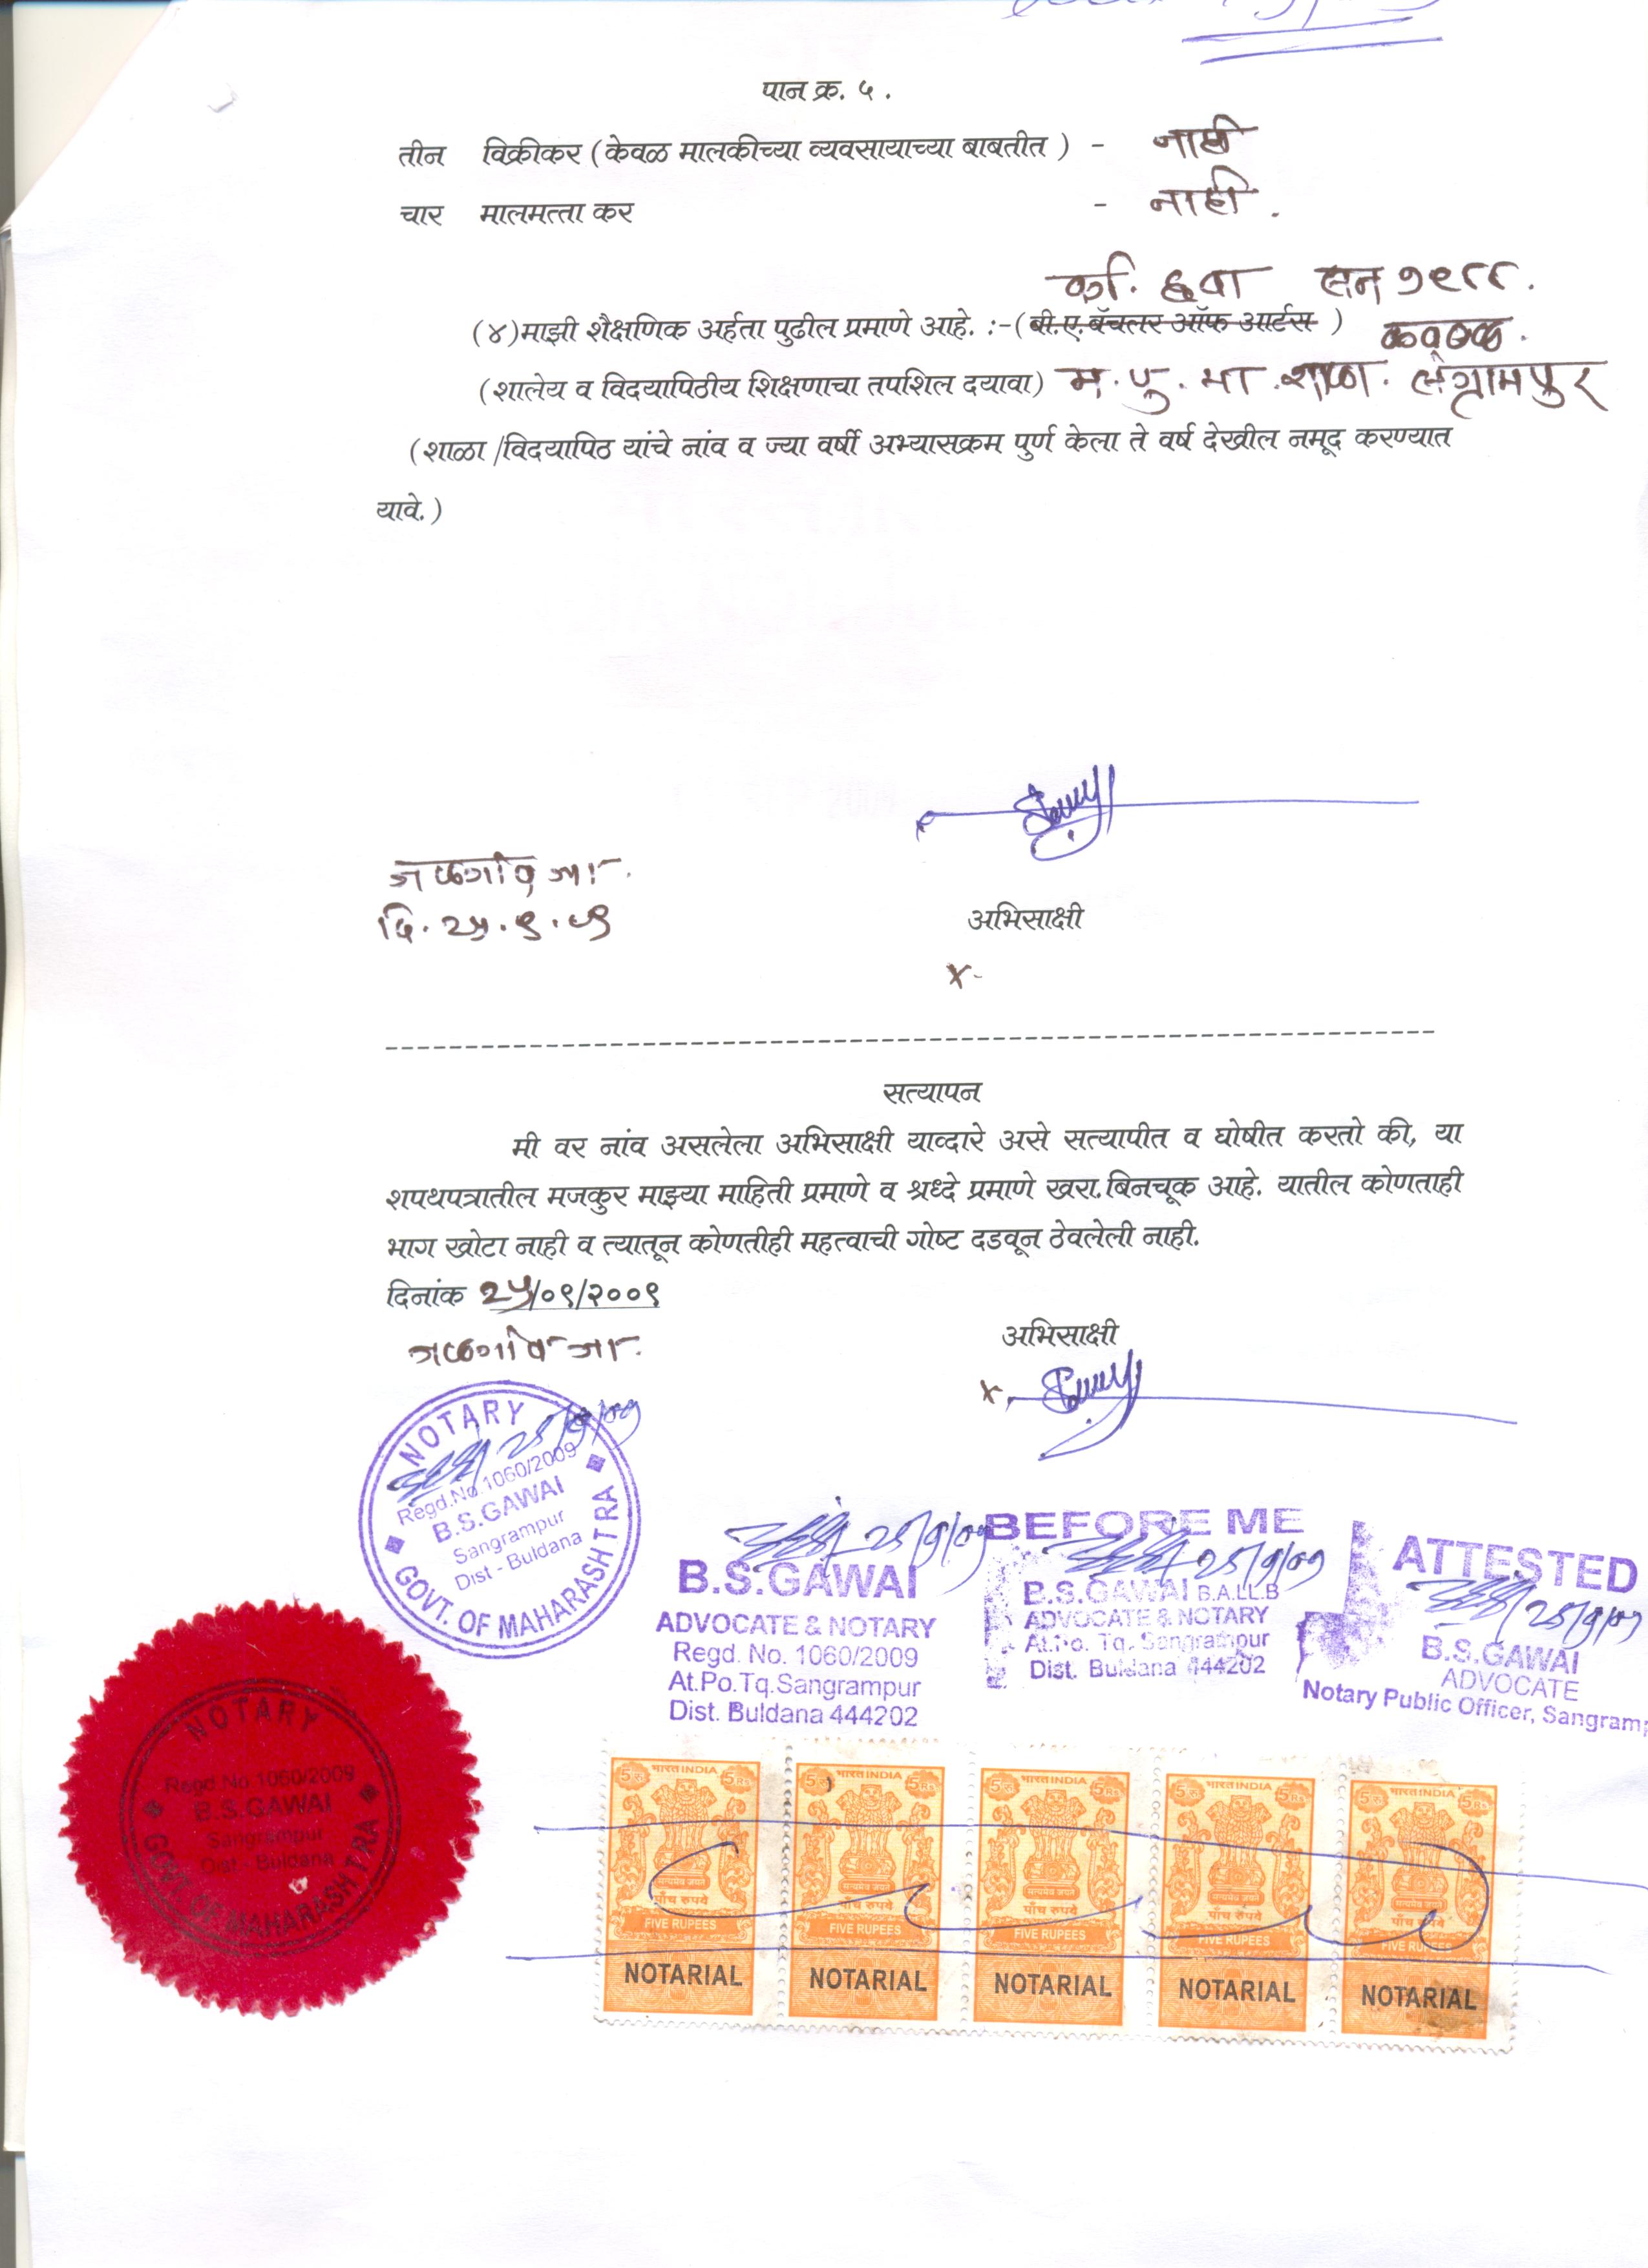 पान क्र. ५ .
तीन विक्रीकर (केवळ मालकीच्या व्यवसायाच्या बाबतीत ) - नाही
चार मालमत्ता कर - नाही .
सन १९८८.
(४)माझी शैक्षणिक अर्हता पुढील प्रमाणे आहे. :-(बी.ए.बॅचलर ऑफ आर्टस )
(शालेय व विदयापिठीय शिक्षणाचा तपशिल दयावा) म. पु. मा . शाळा. संग्रामपुर
(शाळा /विदयापिठ यांचे नांव व ज्या वर्षी अभ्यासक्रम पुर्ण केला ते वर्ष देखील नमूद करण्यात
यावे.)
जळगांव जा.
दि. २५.९.०९
अभिसाक्षी
सत्यापन
मी वर नांव असलेला अभिसाक्षी याव्दारे असे सत्यापीत व घोषीत करतो की, या
शपथपत्रातील मजकुर माझ्या माहिती प्रमाणे व श्रध्दे प्रमाणे खरा.बिनचूक आहे. यातील कोणताही
भाग खोटा नाही व त्यातून कोणतीही महत्वाची गोष्ट दडवून ठेवलेली नाही.
दिनांक २५/०९/२००९
जळगांव जा.
अभिसाक्षी
NOTARY
25/9/09
Regd.No.1060/2009
B.S.GAWAI
Sangrampur
Dist - Buldana
GOVT. OF MAHARASHTRA
25/9/09
B.S.GAWAI
ADVOCATE & NOTARY
Regd. No. 1060/2009
At.Po.Tq.Sangrampur
Dist. Buldana 444202
BEFORE ME
25/9/09
B.S.GAWAI B.A.LL.B
ADVOCATE & NOTARY
At.Po. Tq. Sangrampur
Dist. Buldana 444202
ATTESTED
25/9/09
B.S.GAWAI
ADVOCATE
Notary Public Officer, Sangramp
NOTARY
Regd.No.1060/2009
B.S.GAWAI
Sangrampur
Dist.- Buldana
GOVT. OF MAHARASHTRA
5 रु भारत INDIA 5 Rs
सत्यमेव जयते
पाँच रुपये
FIVE RUPEES
NOTARIAL
5 रु भारत INDIA 5 Rs
सत्यमेव जयते
पाँच रुपये
FIVE RUPEES
NOTARIAL
5 रु भारत INDIA 5 Rs
सत्यमेव जयते
पाँच रुपये
FIVE RUPEES
NOTARIAL
5 रु भारत INDIA 5 Rs
सत्यमेव जयते
पाँच रुपये
FIVE RUPEES
NOTARIAL
5 रु भारत INDIA 5 Rs
सत्यमेव जयते
पाँच रुपये
FIVE RUPEES
NOTARIAL